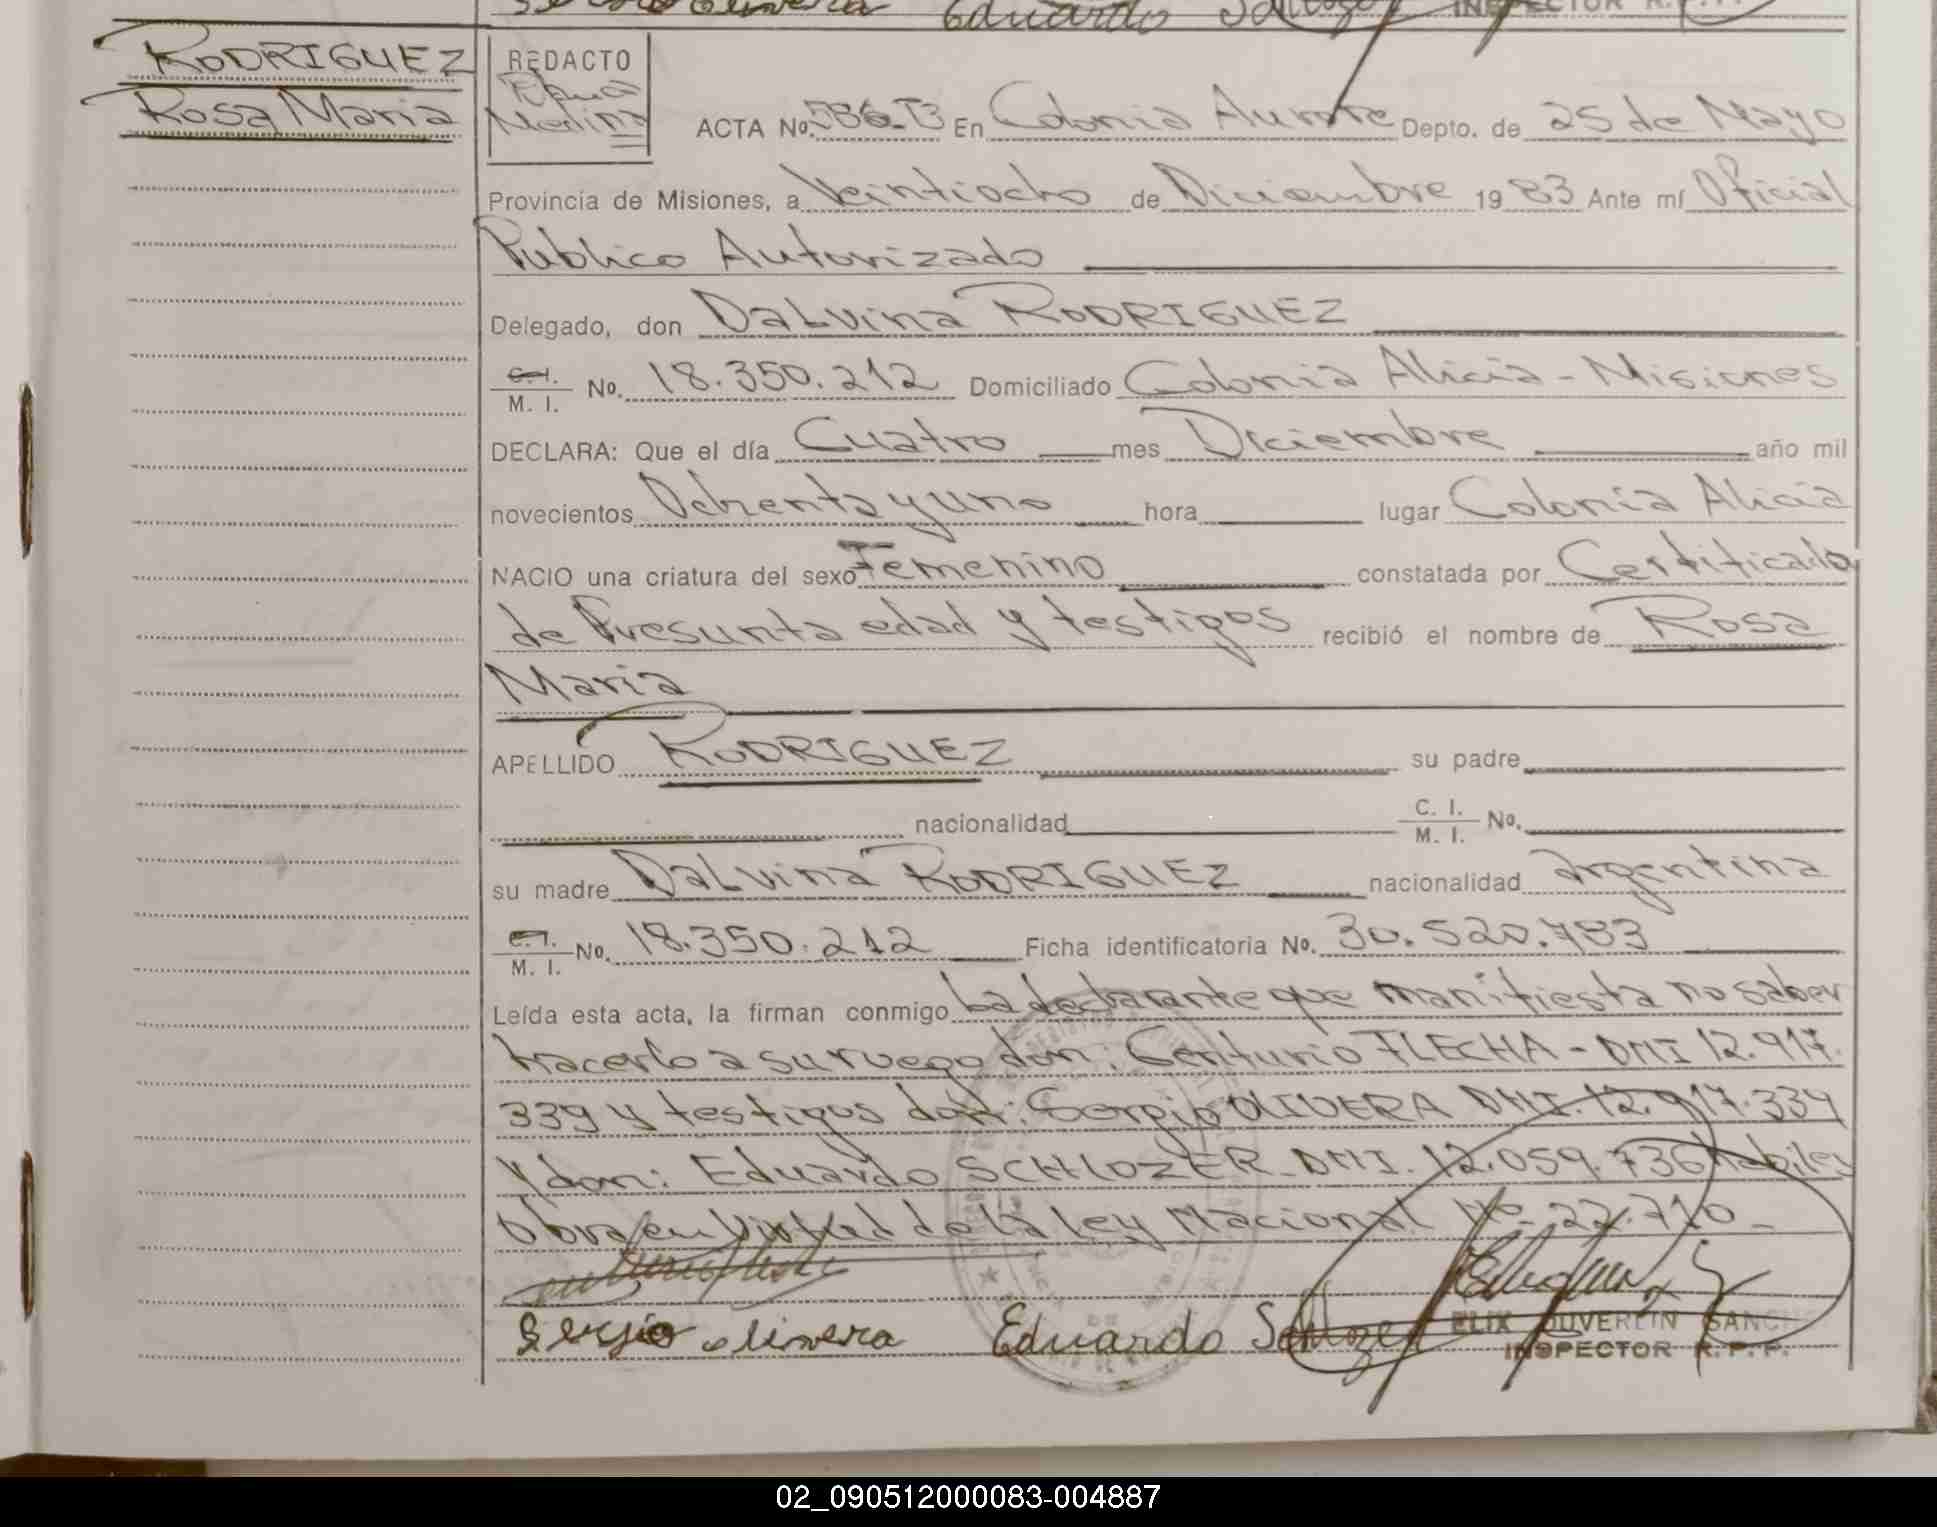 Eduardo
INSPECTOR R. P. P.
RODRIGUEZ
Rosa Maria
REDACTO
Medina
ACTA No. 586-T3 En Colonia Aurora Depto. de 25 de Mayo
Provincia de Misiones, a Veintiocho de Diciembre 19 83 Ante mí Oficial
Publico Autorizado
Delegado, don DaLvina RODRIGUEZ
C. I. / M. I. No. 18.350.212 Domiciliado Colonia Alicia - Misiones
DECLARA: Que el día Cuatro mes Diciembre año mil
novecientos Ochenta y uno hora lugar Colonia Alicia
NACIO una criatura del sexo Femenino constatada por Certificado
de Presunta edad y testigos recibió el nombre de Rosa
Maria
APELLIDO RODRIGUEZ su padre
nacionalidad C. I. / M. I. No.
su madre DaLvina RODRIGUEZ nacionalidad argentina
C. I. / M. I. No. 18.350.212 Ficha identificatoria No. 30.520.783
Leída esta acta, la firman conmigo La declarante que manifiesta no saber
hacerlo a su ruego don: Centurio FLECHA - DMI 12.917.
339 y testigos don: Sergio OLIVERA DMI. 12.917.334
y don: Eduardo SCHLOZER DMI. 12.059.736 habiles
Obra en Virtud de la Ley Nacional Nº 22.710-
Sergio olivera Eduardo
ELIX OUVERLIN SANCH
INSPECTOR R. P. P.
02_090512000083-004887